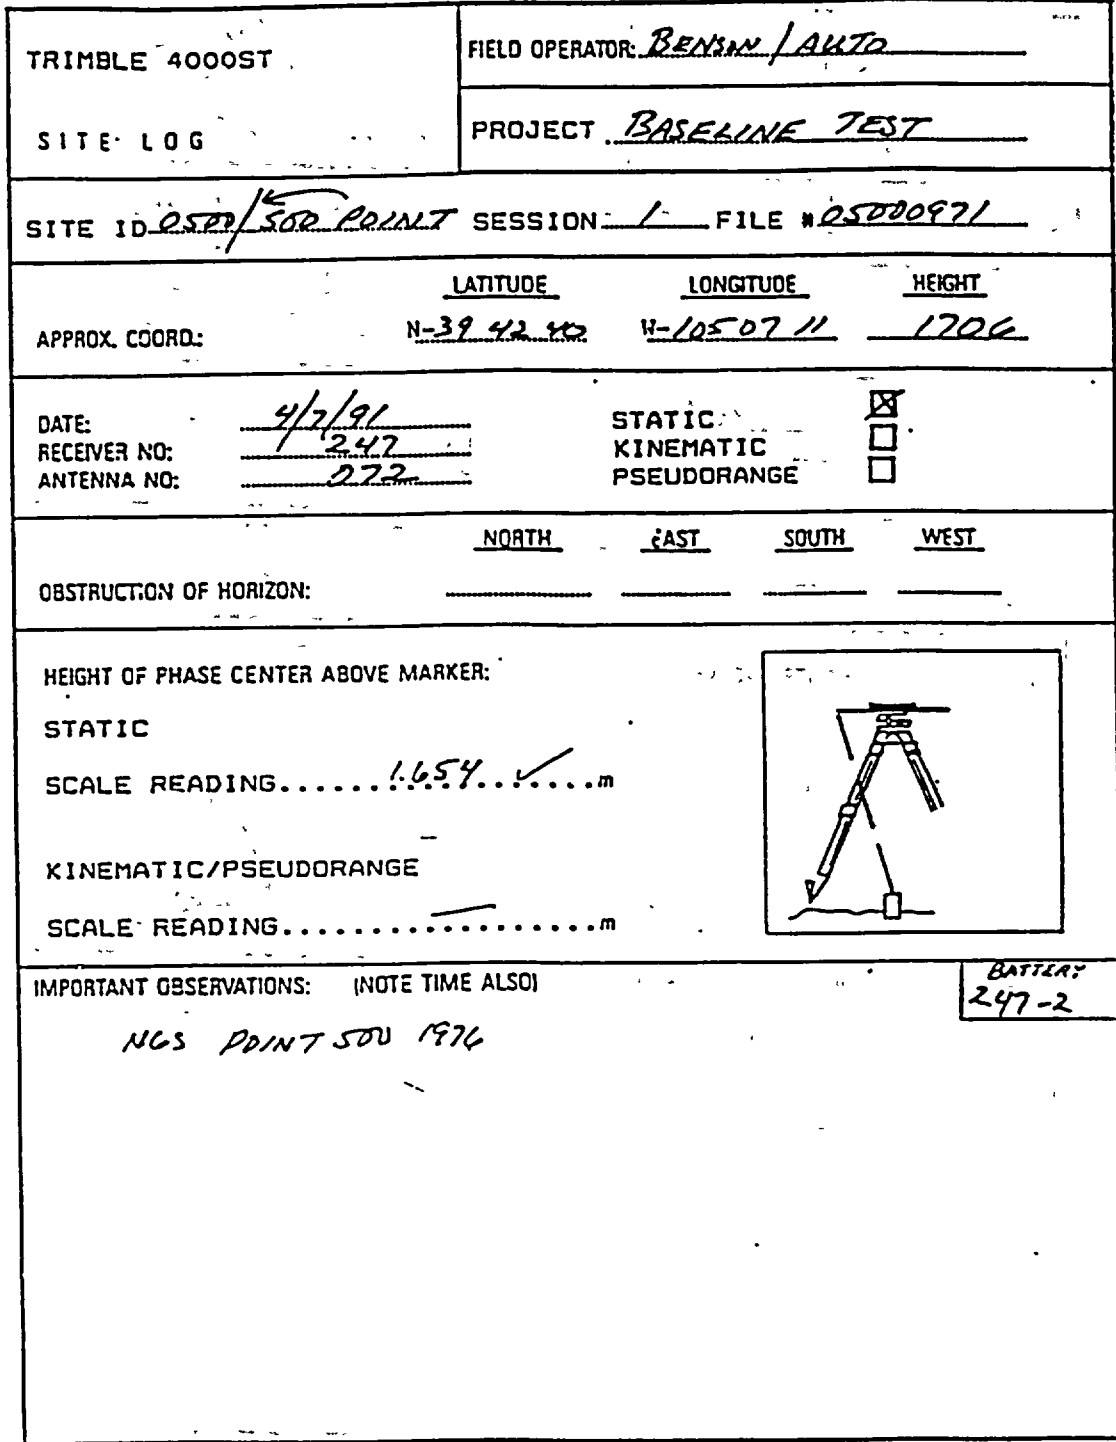 TRIMBLE 4000ST
FIELD OPERATOR: BENSON / AUTO
SITE LOG
PROJECT BASELINE TEST
SITE ID 0500/500 POINT SESSION 1 FILE # 05000971
LATITUDE LONGITUDE HEIGHT
APPROX. COORD.: N-39 42 40 W-105 07 11 1706
DATE: 4/7/91 STATIC
RECEIVER NO: 247 KINEMATIC
ANTENNA NO: 072 PSEUDORANGE
NORTH EAST SOUTH WEST
OBSTRUCTION OF HORIZON:
HEIGHT OF PHASE CENTER ABOVE MARKER:
STATIC
SCALE READING......1.654........m
KINEMATIC/PSEUDORANGE
SCALE READING..................m
IMPORTANT OBSERVATIONS: (NOTE TIME ALSO)
BATTERY
247-2
NGS POINT 500 1976